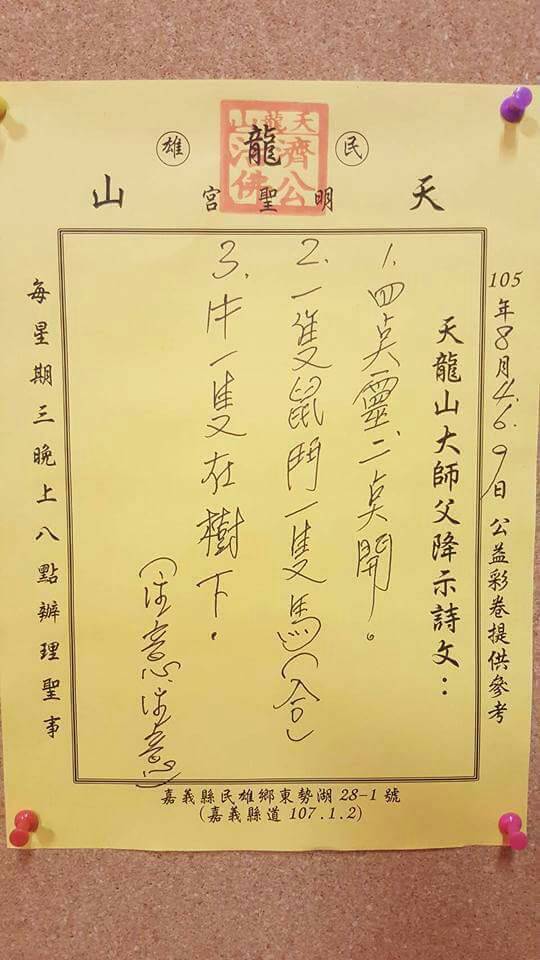 民雄
天龍山
明聖宮
天龍山
濟公
活佛
105年8月4.6.9日 公益彩卷提供參考
天龍山大師父降示詩文：
1. 四点靈二点開。
2. 一隻鼠鬥一隻馬(合)
3. 牛一隻在樹下。
(注意注意)
每星期三晚上八點辦理聖事
嘉義縣民雄鄉東勢湖28-1號
(嘉義縣道107.1.2)